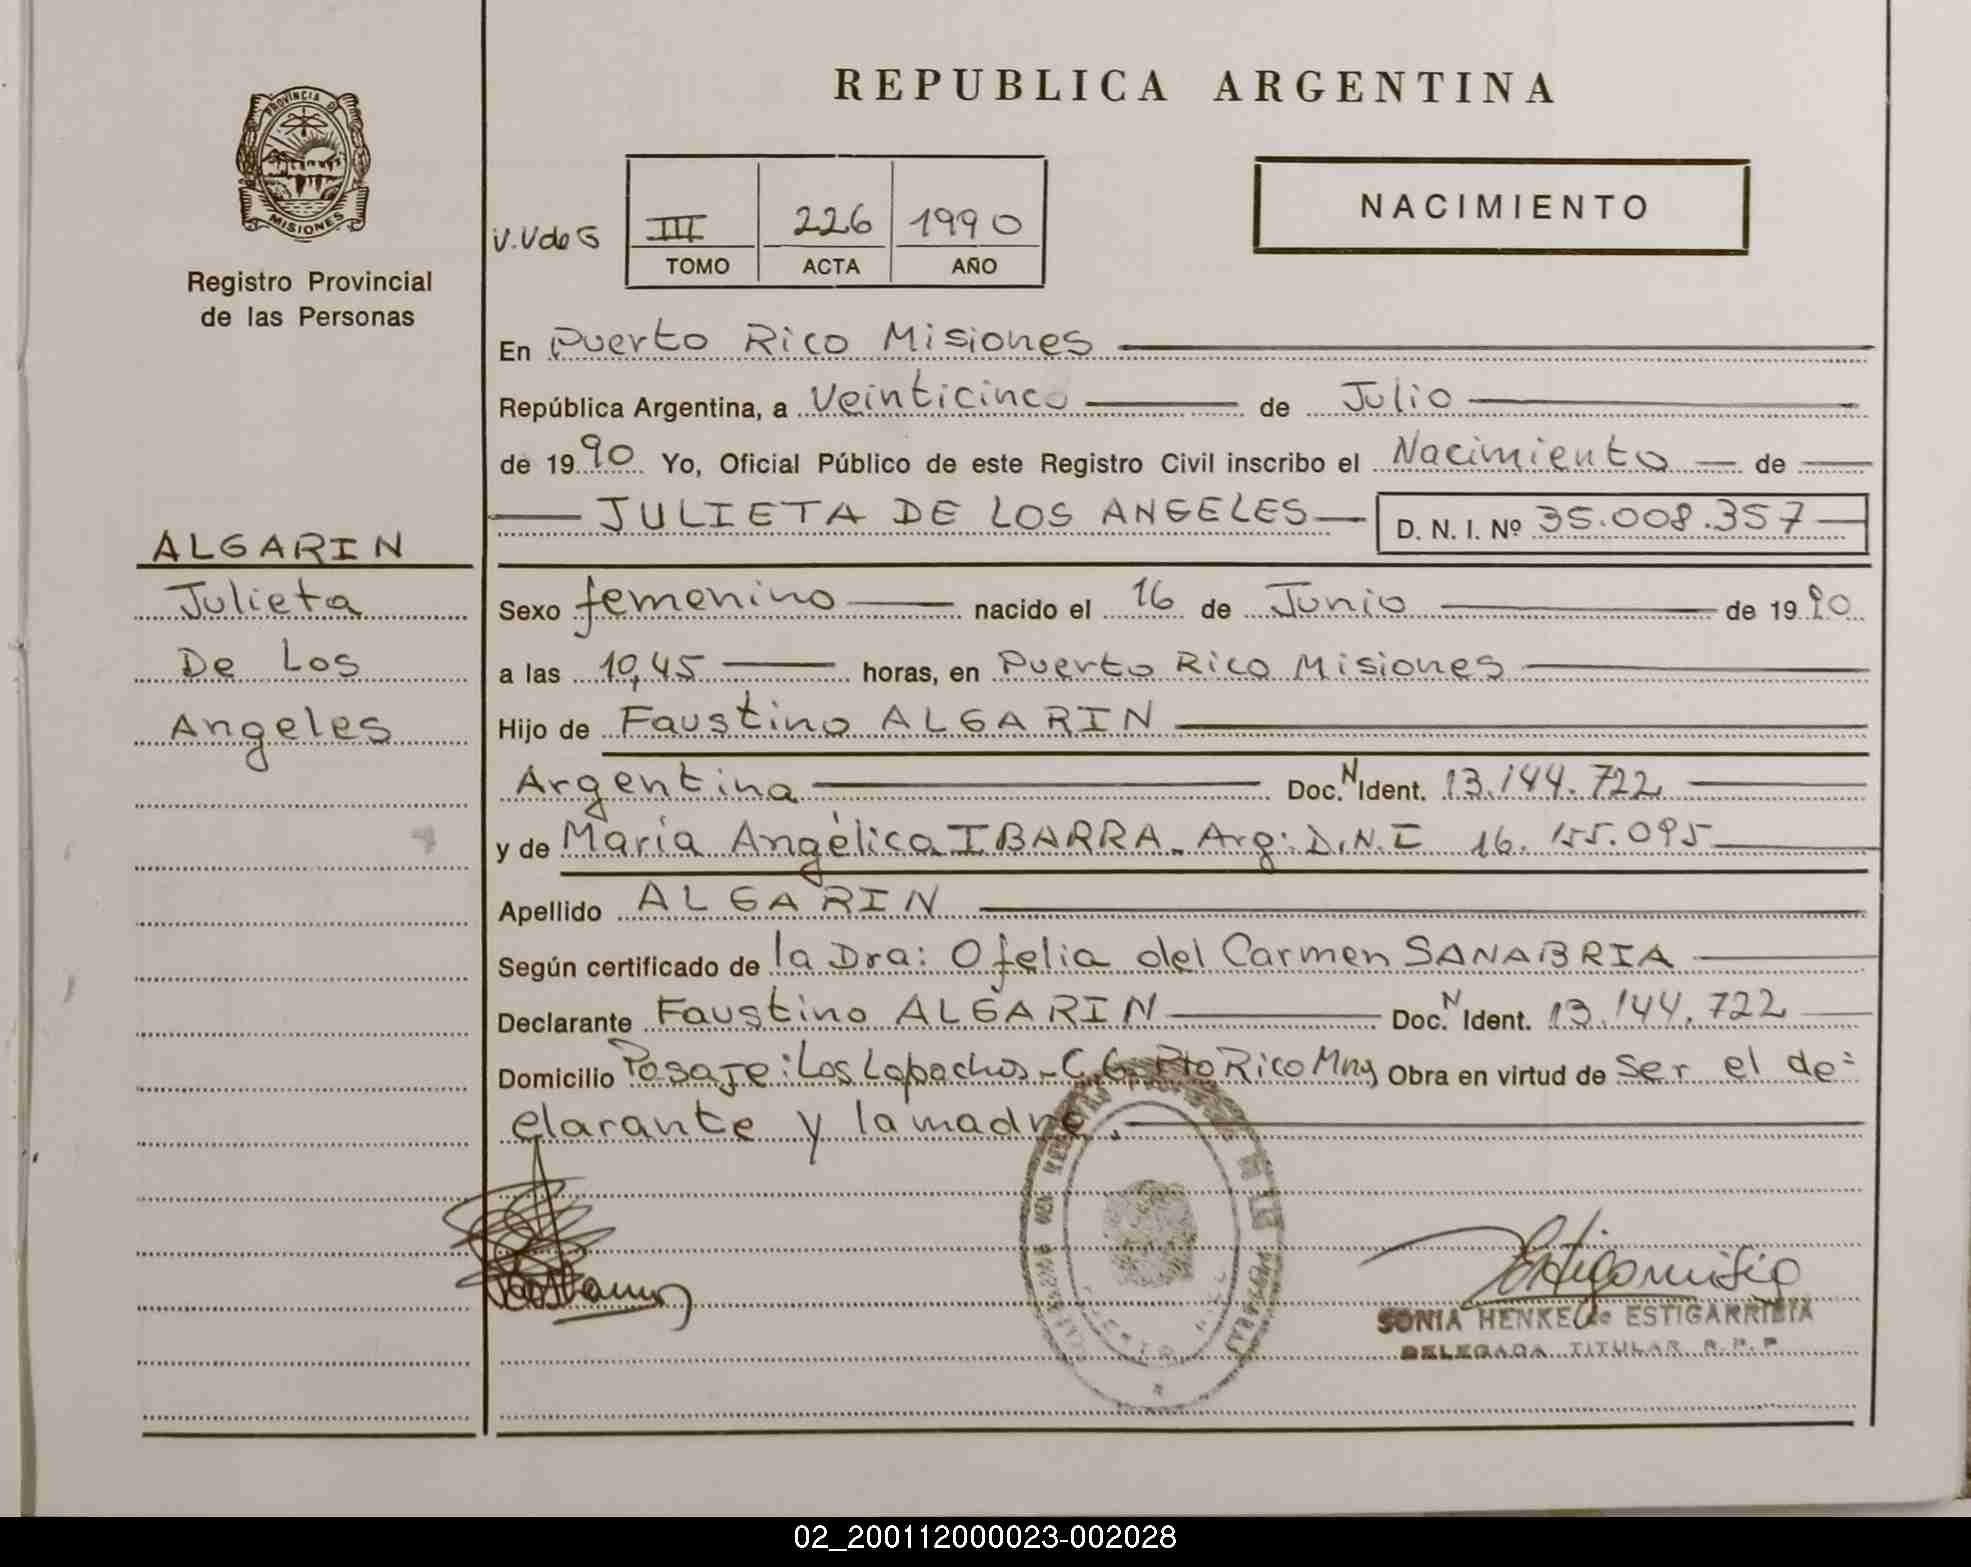 REPUBLICA ARGENTINA
PROVINCIA D
MISIONES
Registro Provincial
de las Personas
V.V de G
III 226 1990
TOMO ACTA AÑO
NACIMIENTO
En Puerto Rico Misiones
República Argentina, a Veinticinco de Julio
de 1990 Yo, Oficial Público de este Registro Civil inscribo el Nacimiento de
JULIETA DE LOS ANGELES D. N. I. Nº 35.008.357
ALGARIN
Julieta
De Los
Angeles
Sexo femenino nacido el 16 de Junio de 1990
a las 10,45 horas, en Puerto Rico Misiones
Hijo de Faustino ALGARIN
Argentina Doc. N Ident. 13.144.722
y de María Angélica IBARRA. Arg: D.N.I 16.155.095
Apellido ALGARIN
Según certificado de la Dra: Ofelia del Carmen SANABRIA
Declarante Faustino ALGARIN Doc. N Ident. 13.144.722
Domicilio Pasaje: Los Lapachos - C.G. Pto Rico Mns Obra en virtud de ser el de=
clarante y la madre.
SONIA HENKE de ESTIGARRIBIA
DELEGADA TITULAR R.P.P
02_200112000023-002028